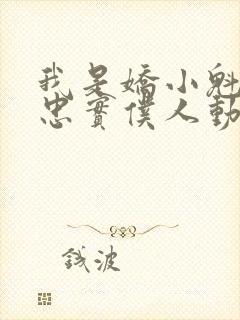 我是嬌小魁
忠實僕人動
錢波